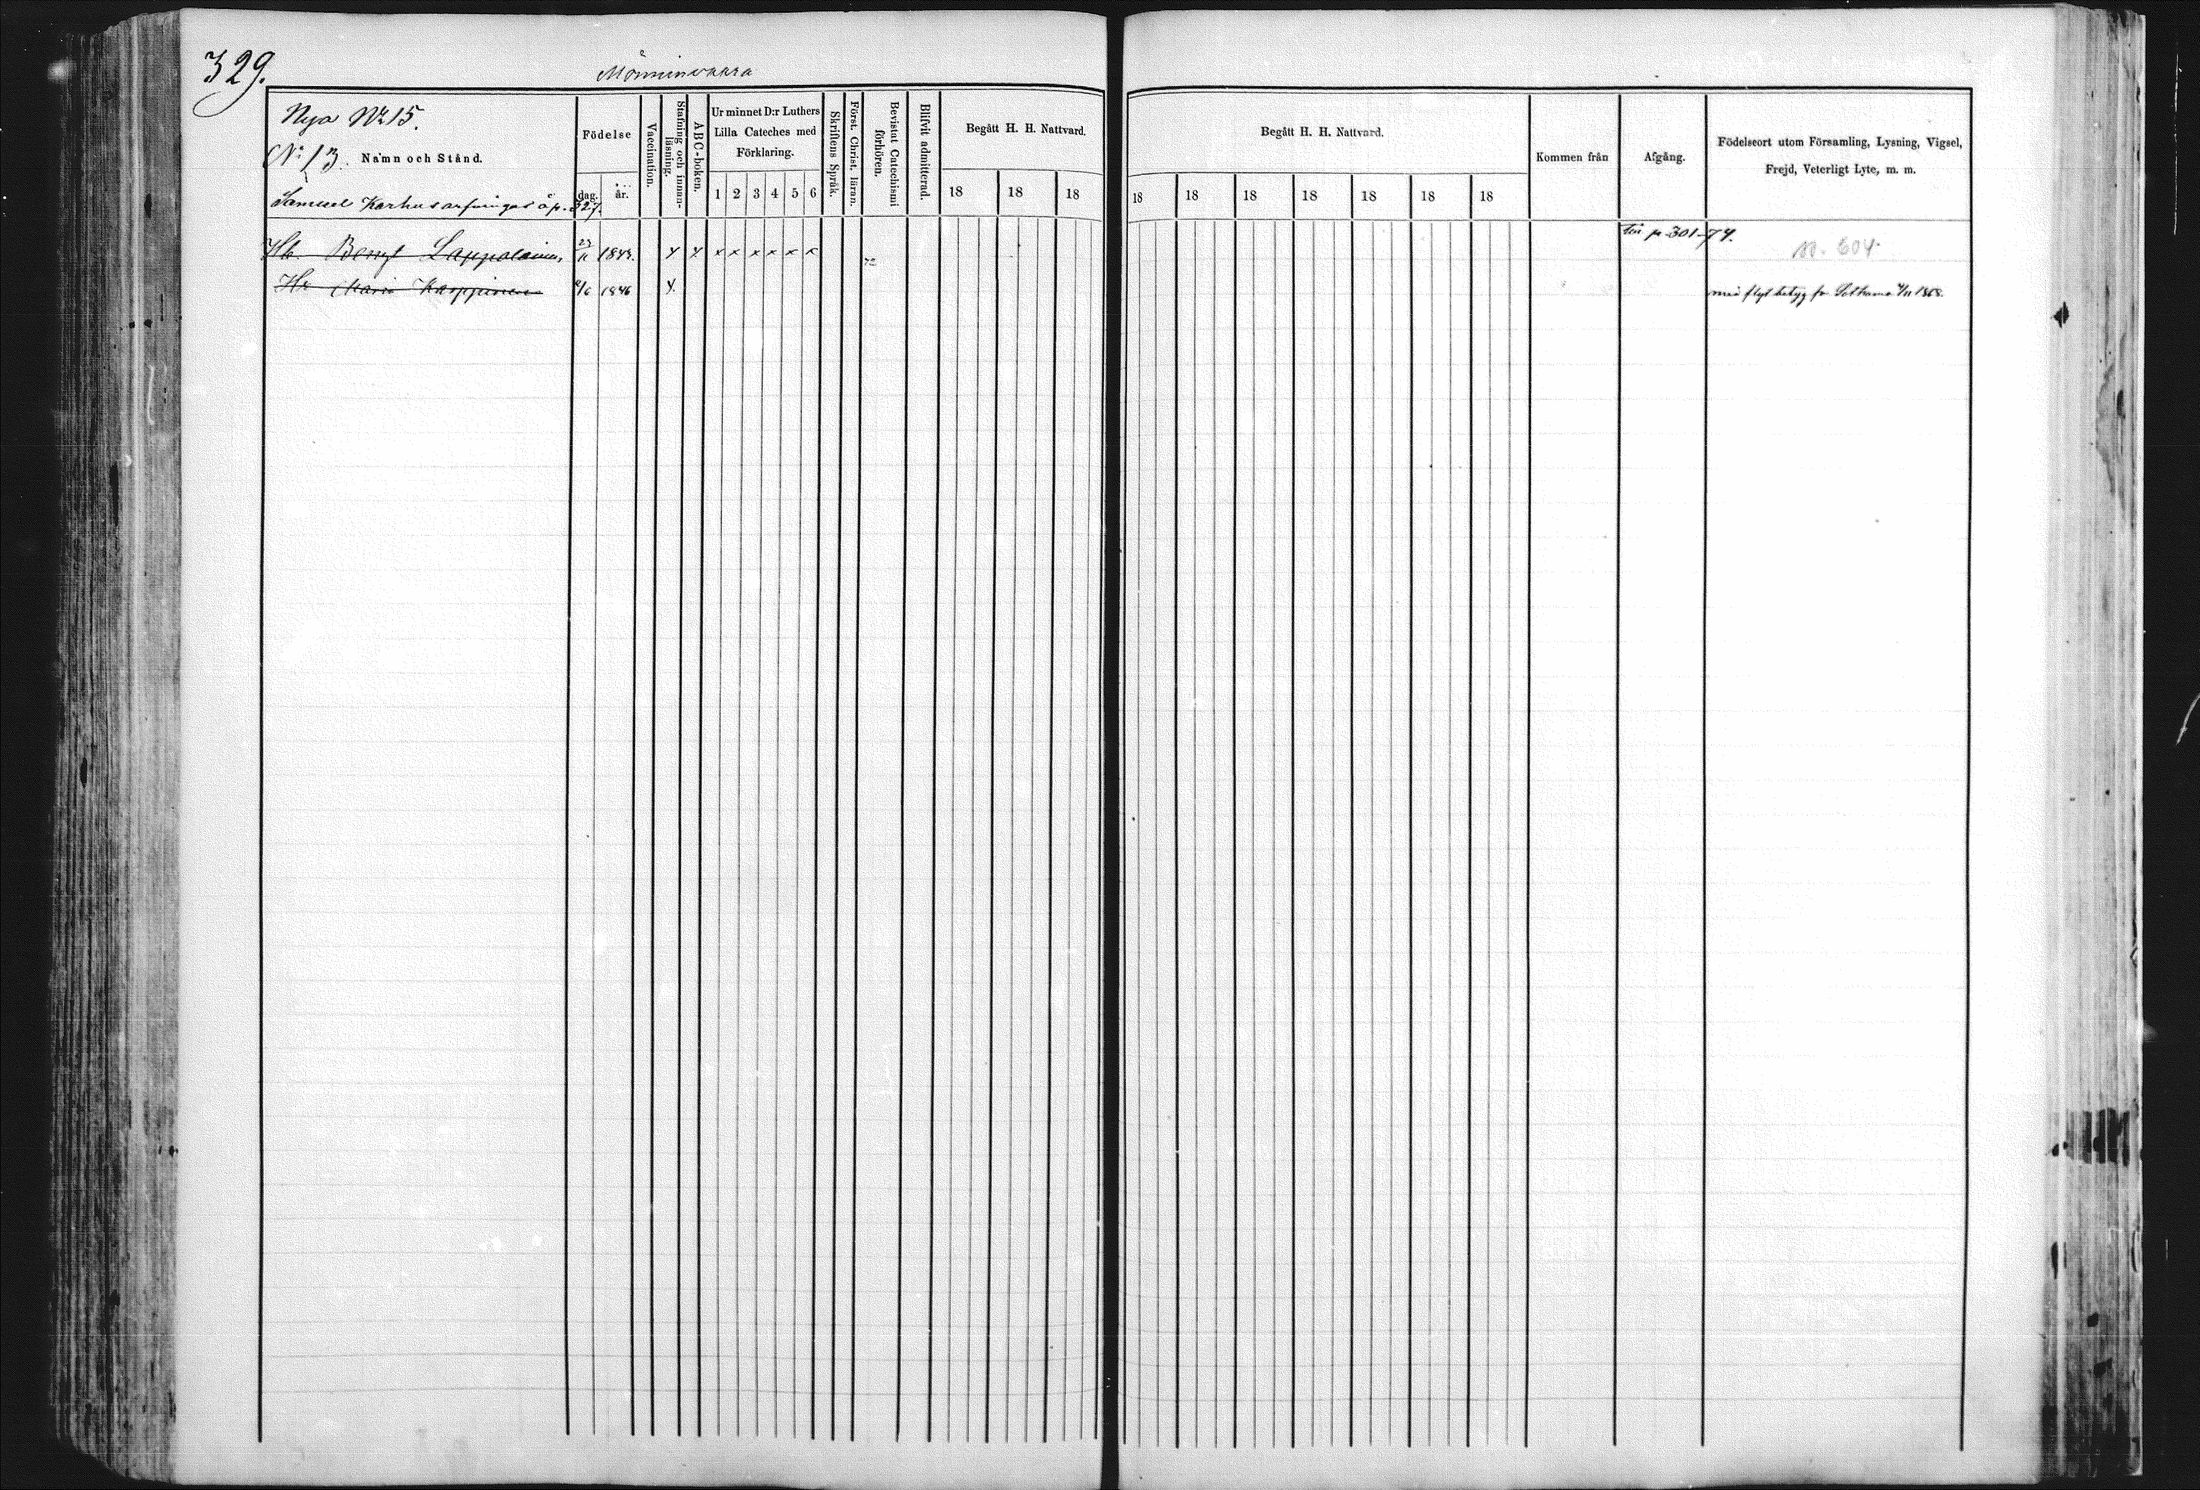 329.
Mönninvaara
Nya No 15.
No 13. Namn och Stånd.
Samuel Karhus arfvingar å p. 327.
Födelse
dag. år.
Vaccination.
Stafning och innanläsning.
ABC-boken.
Ur minnet D:r Luthers
Lilla Cateches med
Förklaring.
1 2 3 4 5 6
Skriftens Språk.
Först. Christ. läran.
Bevistat Catechismi förhören.
Blifvit admitterad.
Begått H. H. Nattvard.
18 18 18
Begått H. H. Nattvard.
18 18 18 18 18 18 18
Kommen från
Afgång.
Födelseort utom Församling, Lysning, Vigsel,
Frejd, Veterligt Lyte, m. m.
Hb. Bengt Lappalainen, 1843. x x x x x x x x
p. 301 - 74.
304
Hu Maria Karppinen 1846 x
med flyt betyg fr Sotkamo 1868.